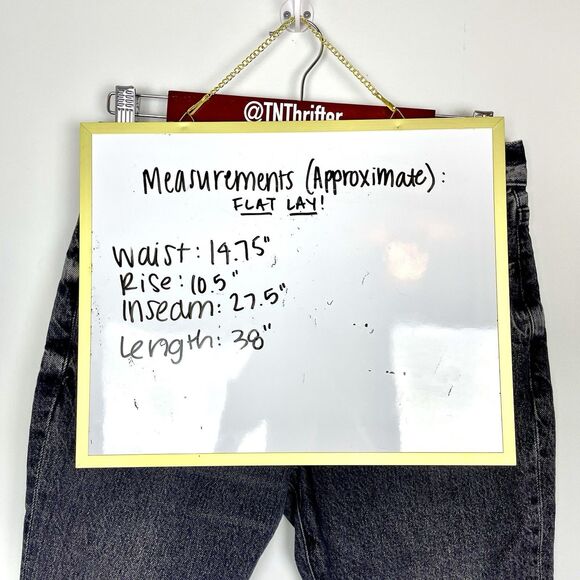 @TNThrifter
Measurements (Approximate):
FLAT LAY!
Waist: 14.75"
Rise: 10.5"
Inseam: 27.5"
Length: 38"